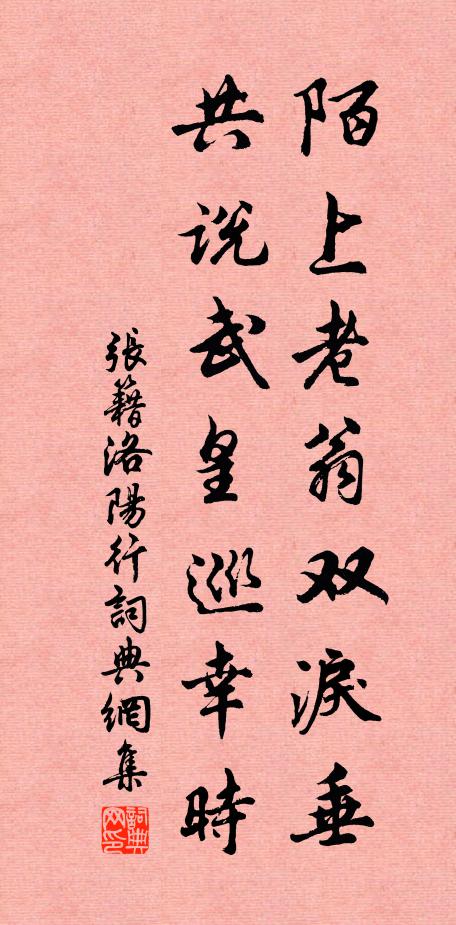 陌上老翁双淚垂
共说武皇巡幸時
張籍洛陽行詞典網集
詞典网印